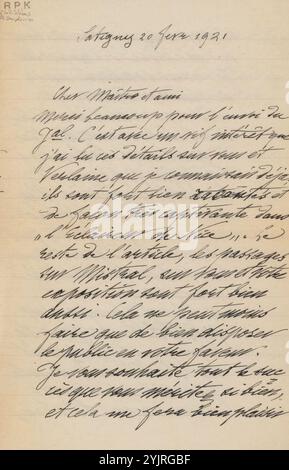 RPK
Satigny 20 fevr 1921
Cher Maître et ami
Merci beaucoup pour l'envoi du
Jal. C'est avec un vif intérêt que
j'ai lu ces détails sur vous et
Verlaine que je connaissais déjà
ils sont fort bien racontés et
de façon très captivante dans
Le
reste de l'article, les passages
sur Mistral, sur
exposition sont fort bien
aussi. Cela ne peut mons
faire que de bien disposer
le public en votre faveur.
Je vous souhaite tout le suc
cès que vous méritez si bien,
et cela me fera bien plaisir
alamy
Image ID: 2YJRGBF
www.alamy.com